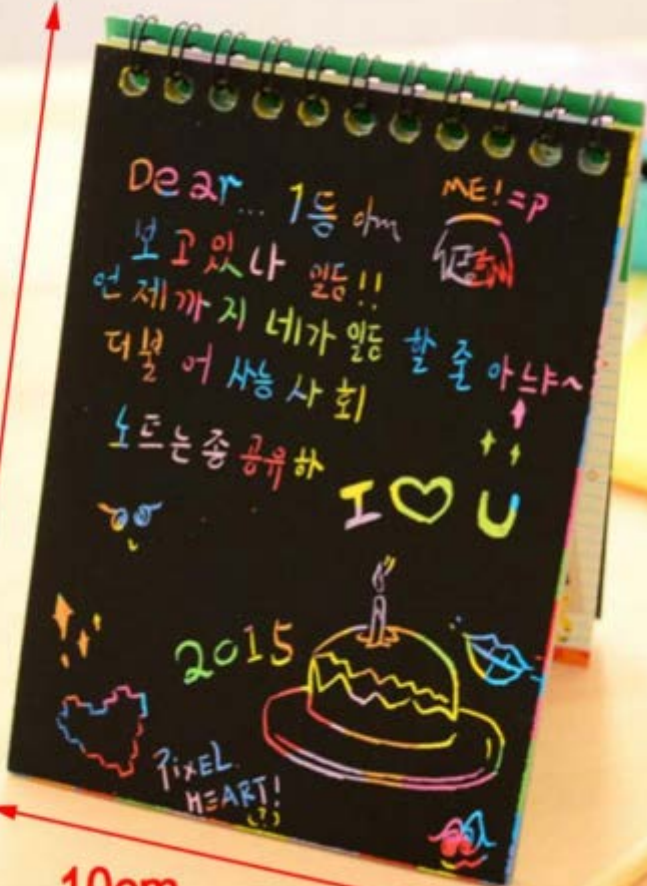 Dear... 1등아
ME! =P
보고있나 일등!!
언제까지 네가 일등 할 줄 아느냐~
더불어 사는 사회
노트는 좀 공유하
I ♡ U
2015
PiXEL
HEART!
(?)
10cm